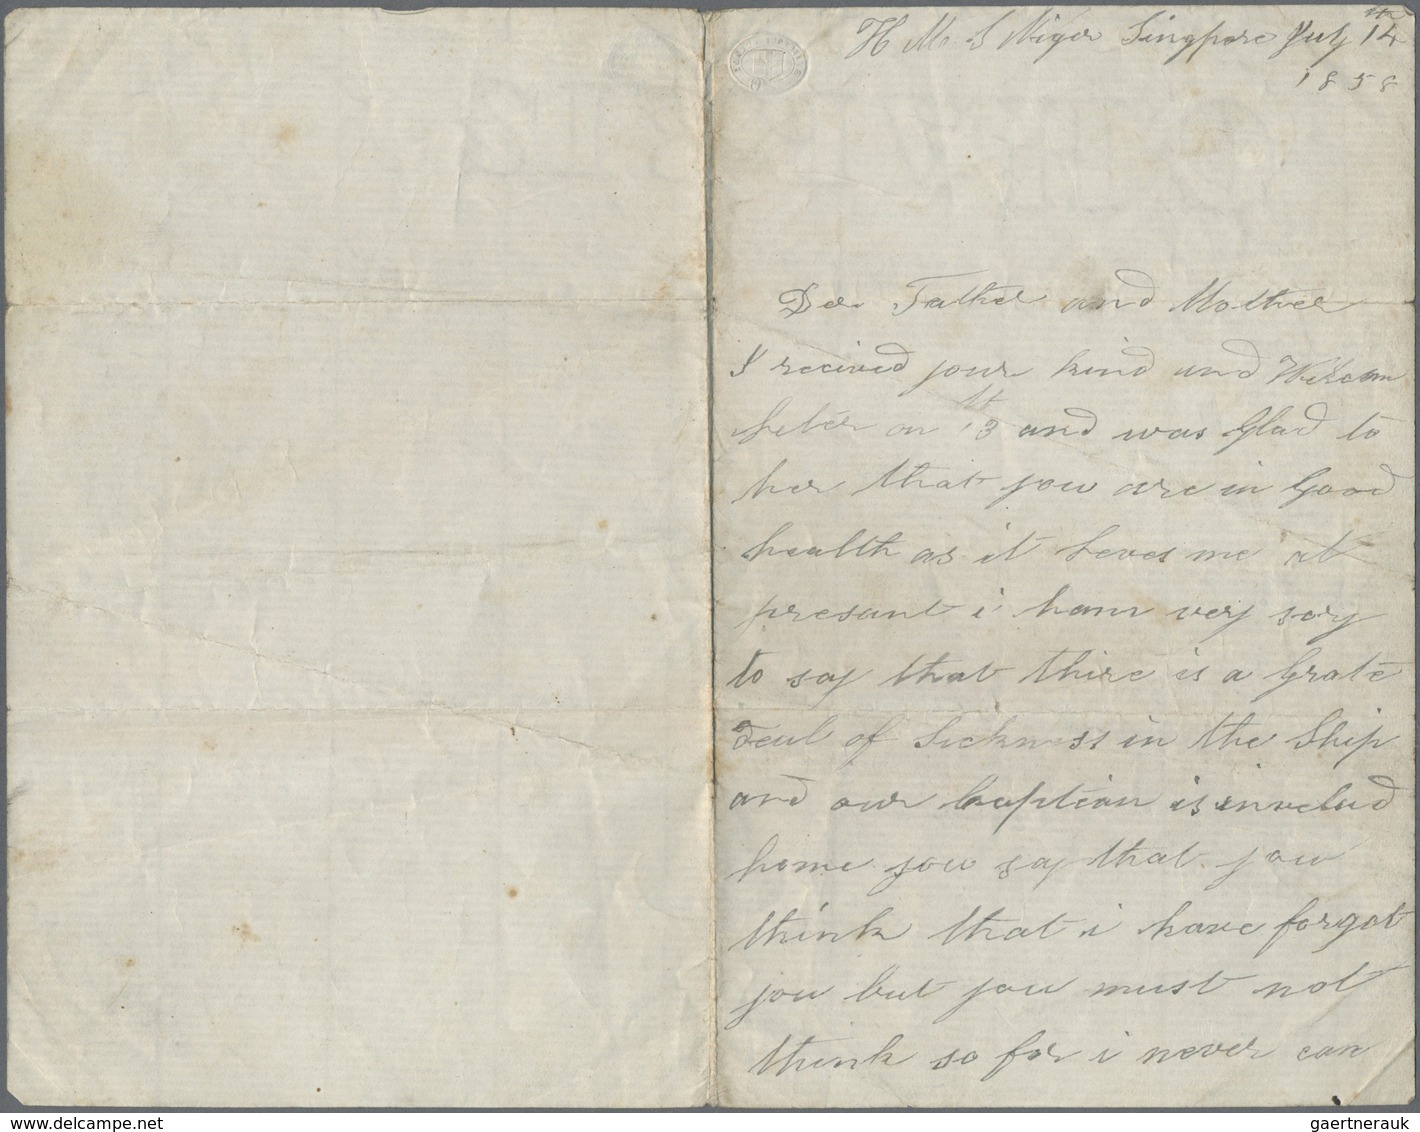 H M S Niger Singpore July 14th
1858
Der Father and Mother
I recived your kind and Welcom
leter on 13 and was Glad to
her that you are in Good
health as it leves me at
presant i ham very sory
to say that thire is a Grate
deal of Sickness in the Ship
and our Captian is invelud
home you say that you
think that i have forgot
you but you must not
think so for i never can
gaertnerauk @ delcampe.net